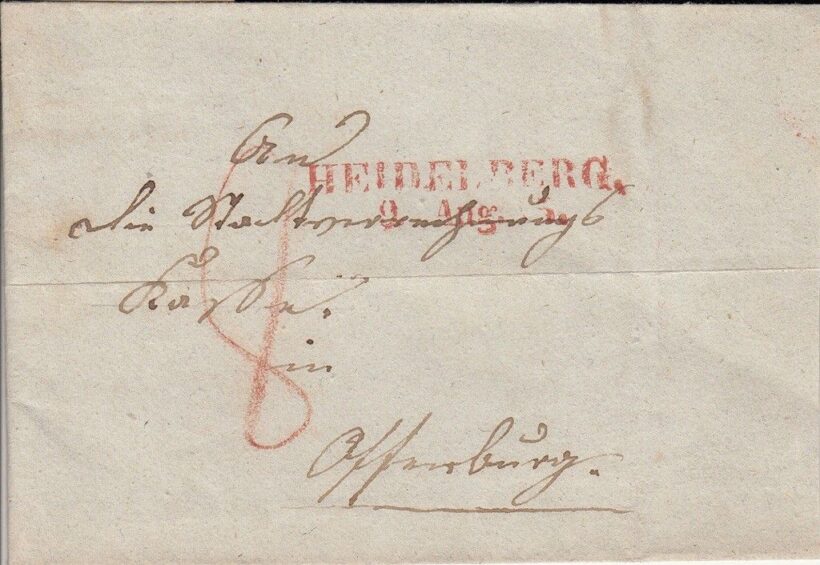 An
HEIDELBERG.
9 Aug.
die Stadtverrechnungs
Kasse.
in
Offenburg.
8